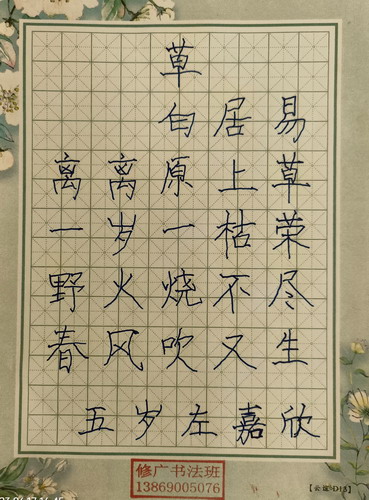 草
白居易
离离原上草
一岁一枯荣
野火烧不尽
春风吹又生
五岁左嘉欣
修广书法班
13869005076